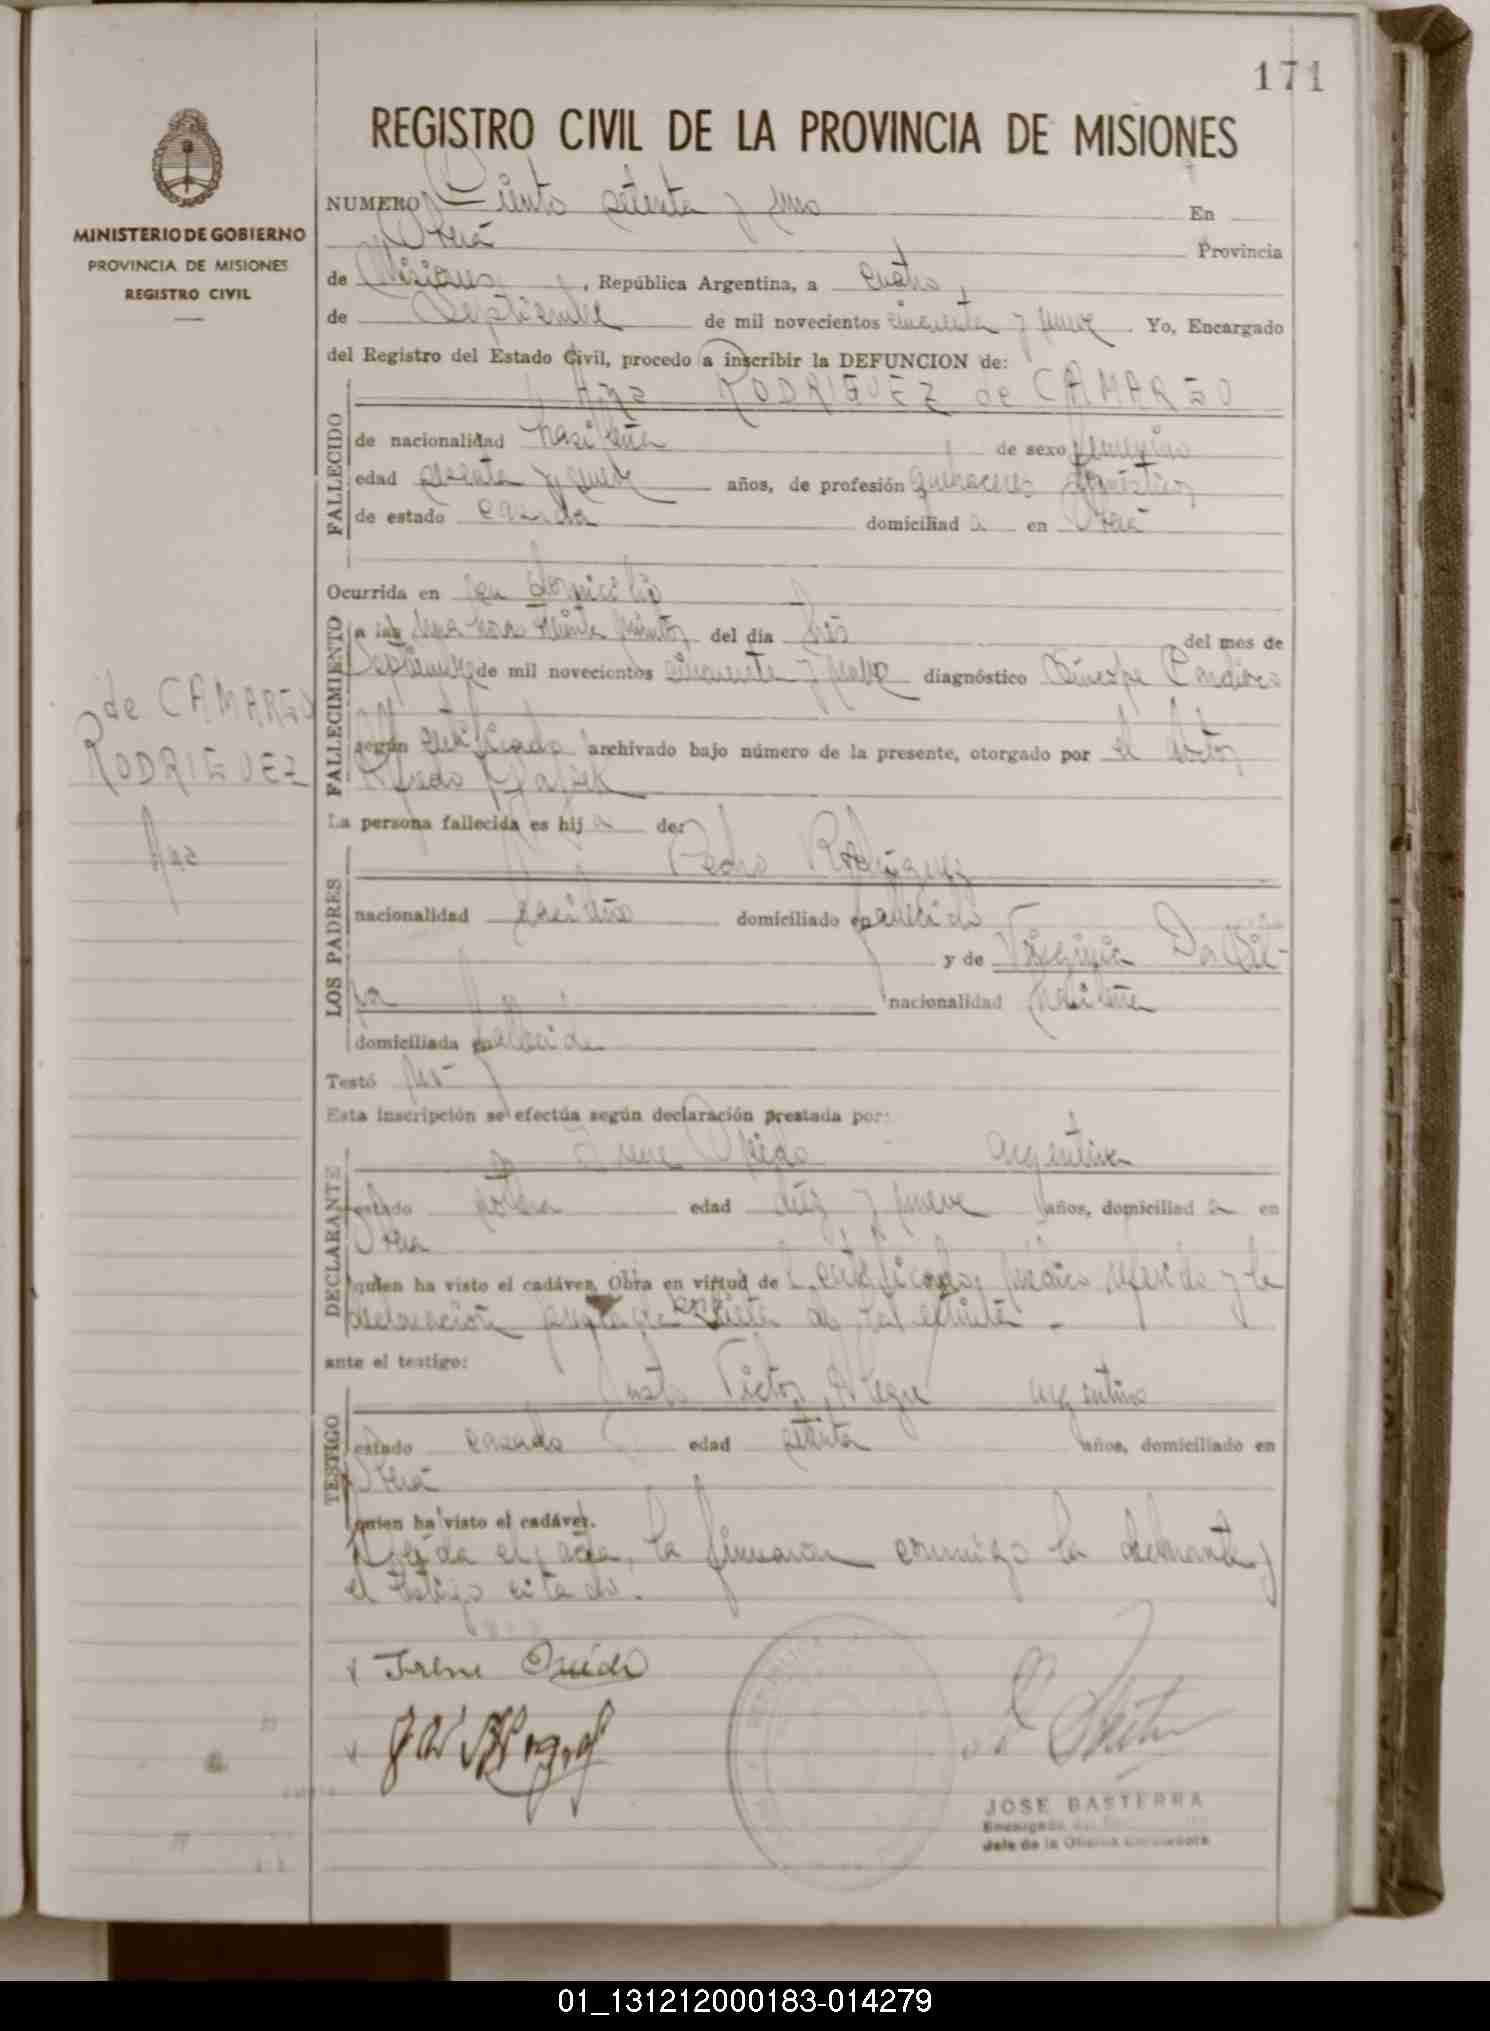 171
REGISTRO CIVIL DE LA PROVINCIA DE MISIONES
MINISTERIO DE GOBIERNO
PROVINCIA DE MISIONES
REGISTRO CIVIL
NUMERO Ciento setenta y uno En
Oberá Provincia
de Misiones, República Argentina, a cuatro
de Septiembre de mil novecientos cincuenta y nueve. Yo, Encargado
del Registro del Estado Civil, procedo a inscribir la DEFUNCION de:
FALLECIDO
Ana RODRIGUEZ de CAMARGO
de nacionalidad brasileña de sexo femenino
edad y nueve años, de profesión quehaceres domésticos
de estado casada domiciliad a en Oberá
Ocurrida en su domicilio
FALLECIMIENTO
a las una hora treinta minutos del día tres del mes de
Septiembre de mil novecientos cincuenta y nueve diagnóstico Sincope Cardíaco
según certificado archivado bajo número de la presente, otorgado por el doctor
Alfredo
de CAMARGO
RODRIGUEZ
Ana
La persona fallecida es hij a de:
LOS PADRES
Pedro Rodriguez
nacionalidad brasileño domiciliado en fallecido
y de Virginia Da Sil-
va nacionalidad brasileña
domiciliada en fallecida
Testó no-
Esta inscripción se efectúa según declaración prestada por:
DECLARANTE
Irene argentina
estado soltera edad diez y nueve años, domiciliad a en
Oberá
quien ha visto el cadáver, Obra en virtud de certificado médico referido y la
declaración
ante el testigo:
TESTIGO
Justo Victor Alegre argentino
estado casado edad años, domiciliado en
Oberá
quien ha visto el cadáver.
Leída el acta, la firmaron conmigo la declarante y
el testigo citado.
Irene
JOSE BASTERRA
Encargado
Jefe de la Oficina
01_131212000183-014279